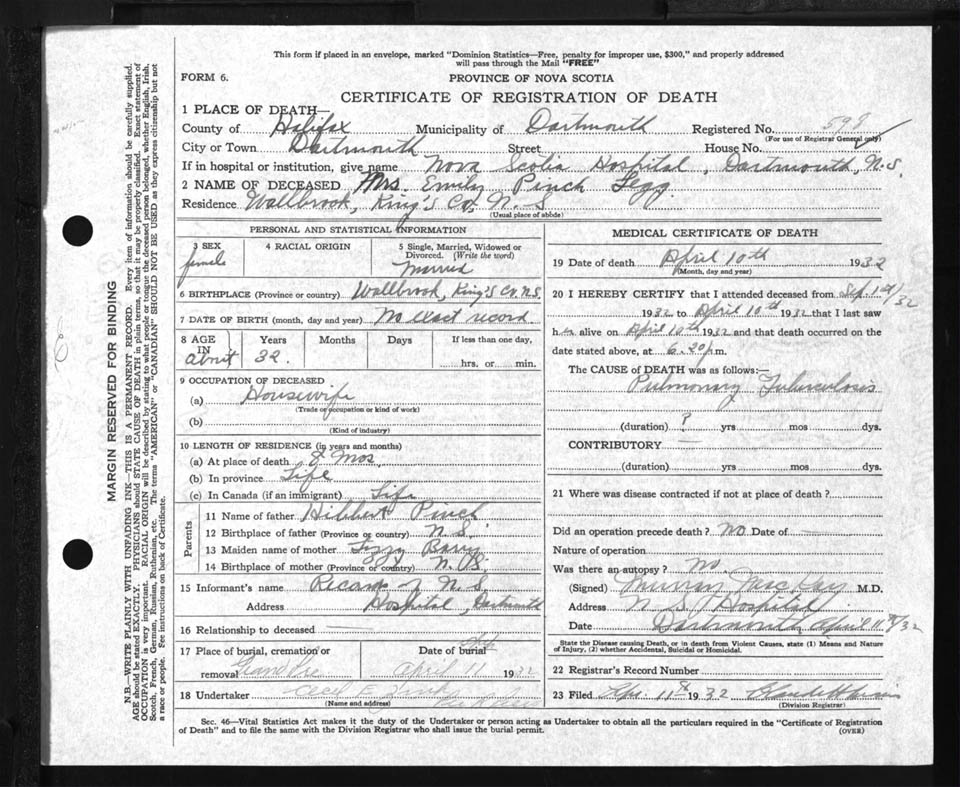 This form if placed in an envelope, marked "Dominion Statistics—Free, penalty for improper use, $300," and properly addressed
will pass through the Mail "FREE"
FORM 6.
PROVINCE OF NOVA SCOTIA
CERTIFICATE OF REGISTRATION OF DEATH
1 PLACE OF DEATH—
County of Halifax Municipality of Dartmouth Registered No. 598
(For use of Registrar General only)
City or Town Dartmouth Street House No.
If in hospital or institution, give name Nova Scotia Hospital, Dartmouth, N.S.
2 NAME OF DECEASED Mrs. Emily Pinch Legg
Residence Wallbrook, King's Co, N.S
(Usual place of abode)
PERSONAL AND STATISTICAL INFORMATION
3 SEX female
4 RACIAL ORIGIN
5 Single, Married, Widowed or
Divorced. (Write the word)
Married
6 BIRTHPLACE (Province or country) Wallbrook, King's Co. N.S.
7 DATE OF BIRTH (month, day and year) No exact record
8 AGE Years Months Days If less than one day,
IN about 32. hrs. or min.
9 OCCUPATION OF DECEASED
(a) Housewife
(Trade or occupation or kind of work)
(b)
(Kind of industry)
10 LENGTH OF RESIDENCE (in years and months)
(a) At place of death Mos.
(b) In province Life
(c) In Canada (if an immigrant) Life
Parents
11 Name of father Hibbert Pinch
12 Birthplace of father (Province or country) N.S.
13 Maiden name of mother Lizzy Barry
14 Birthplace of mother (Province or country) N.S.
15 Informant's name Records of N.S.
Address Hospital, Dartmouth
16 Relationship to deceased —
17 Place of burial, cremation or Date of burial
removal Grand Pre April 11 1932
18 Undertaker Cecil E.
(Name and address)
MEDICAL CERTIFICATE OF DEATH
19 Date of death April 10th 1932
(Month, day and year)
20 I HEREBY CERTIFY that I attended deceased from Sep. 1st/32
1932 to April 10th 1932 that I last saw
her alive on April 10th 1932 and that death occurred on the
date stated above, at 6.20 p m.
The CAUSE of DEATH was as follows:—
Pulmonary Tuberculosis
(duration) ? yrs mos dys.
CONTRIBUTORY —
(duration) yrs mos dys.
21 Where was disease contracted if not at place of death?
Did an operation precede death? No Date of
Nature of operation
Was there an autopsy? No.
(Signed) Murray MacKay M.D.
Address N.S. Hospital
Date Dartmouth April 11th/32
State the Disease causing Death, or in death from Violent Causes, state (1) Means and Nature
of Injury, (2) whether Accidental, Suicidal or Homicidal.
22 Registrar's Record Number
23 Filed Apr. 11th 1932
(Division Registrar)
Sec. 46—Vital Statistics Act makes it the duty of the Undertaker or person acting as Undertaker to obtain all the particulars required in the "Certificate of Registration
of Death" and to file the same with the Division Registrar who shall issue the burial permit.
(OVER)
MARGIN RESERVED FOR BINDING
N.B.—WRITE PLAINLY WITH UNFADING INK—THIS IS A PERMANENT RECORD. Every item of information should be carefully supplied.
AGE should be stated EXACTLY. PHYSICIANS should STATE CAUSE OF DEATH in plain terms, so that it may be properly classified. Exact statement of
OCCUPATION is very important. RACIAL ORIGIN will be described by stating to what people or tongue the deceased person belonged, whether English, Irish,
Scotch, French, German, Russian, Ruthenian, etc. The terms "AMERICAN" or "CANADIAN" SHOULD NOT BE USED as they express citizenship but not
a race or people. See instructions on back of Certificate.